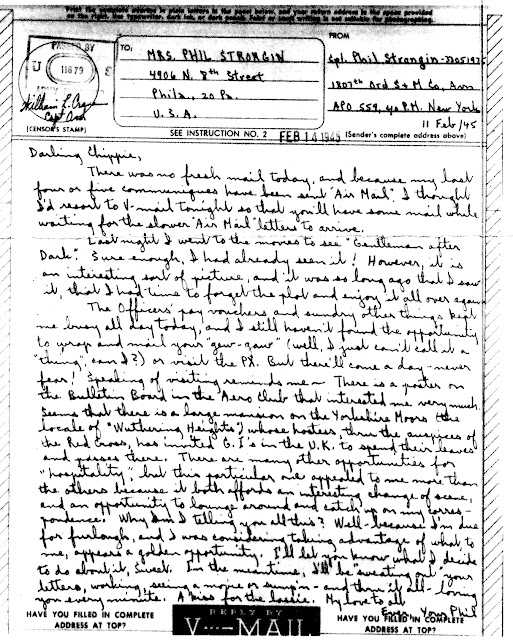 Print the complete address in plain letters in the panel below, and your return address in the space provided
on the right. Use typewriter, dark ink, or dark pencil. Faint or small writing is not suitable for photographing.
PASSED BY
U S
11679
ARMY
Capt Ord
(CENSOR'S STAMP)
TO:
MRS. PHIL STRONGIN
4906 N. 8th Street
Phila, 20 Pa.
U.S.A.
FROM
Cpl. Phil Strongin-
1807th Ord S+M Co. Avn
APO 559, % P.M. New York
11 Feb/45
SEE INSTRUCTION NO. 2
FEB 14 1945
(Sender's complete address above)
Darling Chippie,
There was no fresh mail today, and because my last
four or five communiques have been sent "Air Mail", I thought
I'd resort to V-mail tonight so that you'll have some mail while
waiting for the slower "Air Mail" letters to arrive.
Last night I went to the movies to see "Gentleman after
Dark". Sure enough, I had already seen it! However, it is
an interesting sort of picture, and it was so long ago that I saw
it, that I had time to forget the plot and enjoy it all over again.
The Officers' pay vouchers and sundry other things kept
me busy all day today, and I still haven't found the opportunity
to wrap and mail your "gew-gaw" (well, I just can't call it a
"thing", can I?) or visit the PX. But there'll come a day - never
fear! Speaking of visiting reminds me - There is a poster on
the Bulletin Board in the Aero Club that interested me very much.
Seems that there is a large mansion on the Yorkshire Moors (the
locale of "Wuthering Heights") whose hostess thru the auspices of
the Red Cross, has invited G.I.'s in the U.K. to spend their leaves
and passes there. There are many other opportunities for
"hospitality", but this particular one appealed to me more than
the others because it both affords an interesting change of scene,
and an opportunity to lounge around and catch up on my corres-
pondence. Why am I telling you all this? Well - because I'm due
for furlough, and I was considering taking advantage of what to
me, appears a golden opportunity. I'll let you know what I decide
to do about it, Sweet. In the meantime, I'll be "sweatin' out" your
letters, working, seeing a movie or sump'n - and thru it all - loving
you every minute. A kiss for the lassie. My love to all
Ever, Your Phil
HAVE YOU FILLED IN COMPLETE
ADDRESS AT TOP?
REPLY BY
V···-MAIL
HAVE YOU FILLED IN COMPLETE
ADDRESS AT TOP?